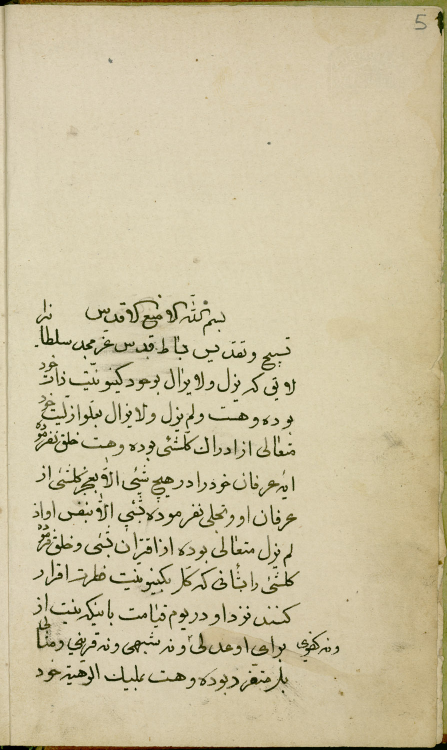 5
بسم الله الامنع الاقدس
تسبیح و تقدیس بساط قدس عز مجد سلطانیرا
لایق که لم یزل ولایزال بوجود کینونیت ذات خود
بوده و هست ولم یزل ولا یزال بعلو ازلیت خود
متعالی از ادراك کلشئی بوده و هست خلق نفرموده
ایهٔ عرفان خود را در هیچ شئی الا بعجز کلشئی از
عرفان او و تجلی نفرموده بشئی الا بنفس او اذ
لم یزل متعالی بوده از اقتران بشئی و خلق فرموده
کلشئی را بشانی که کل بکینونیت فطرت اقرار
کنند نزد او در یوم قیامت باینکه نیست از
برای او عدلی و نه کفوی و نه شبهی و نه قرینی و نه مثالی
بل متفرد بوده و هست بملیك الوهیة خود